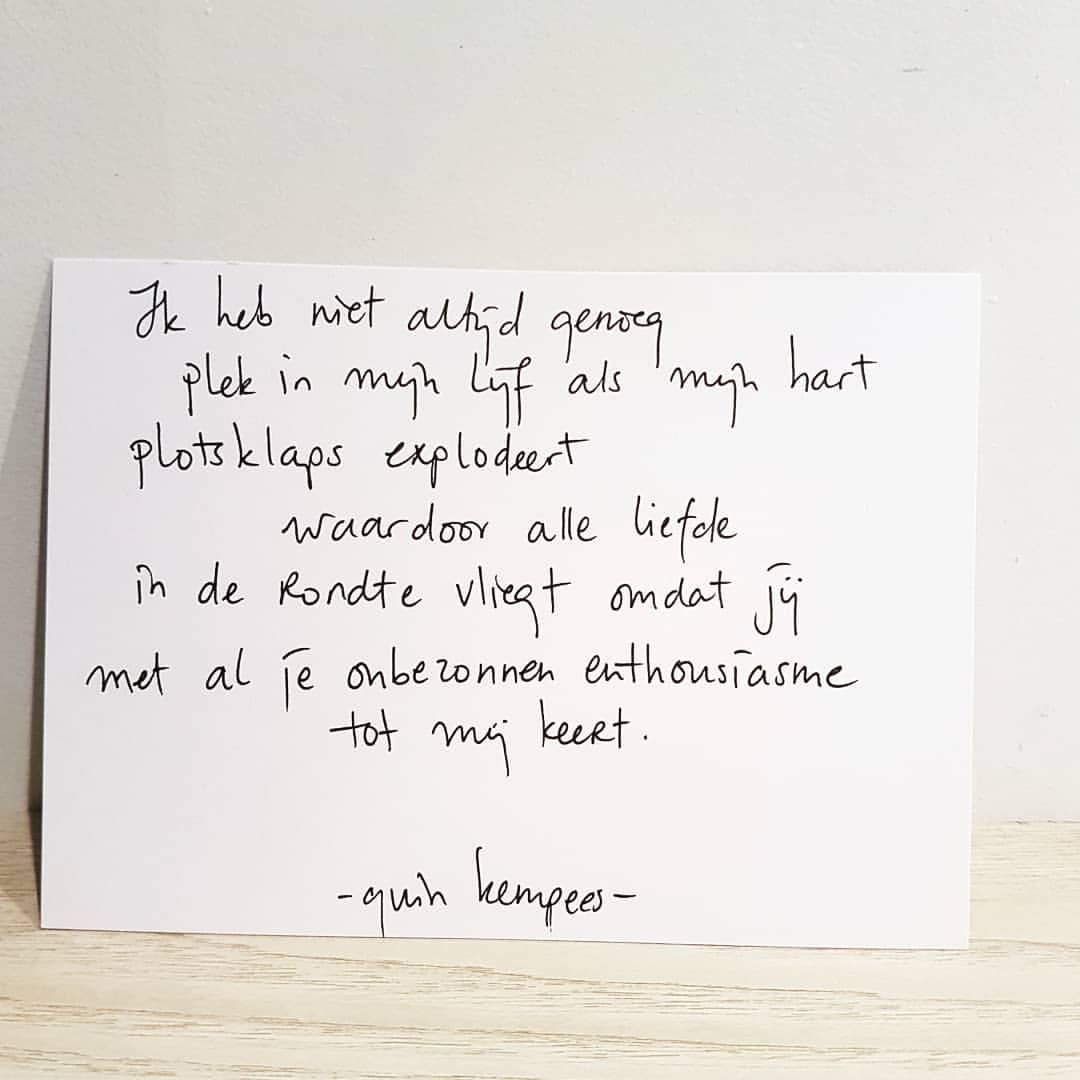 Ik heb niet altijd genoeg
plek in mijn lijf als mijn hart
plotsklaps explodeert
waardoor alle liefde
in de rondte vliegt omdat jij
met al je onbezonnen enthousiasme
tot mij keert.
-quin kempees-